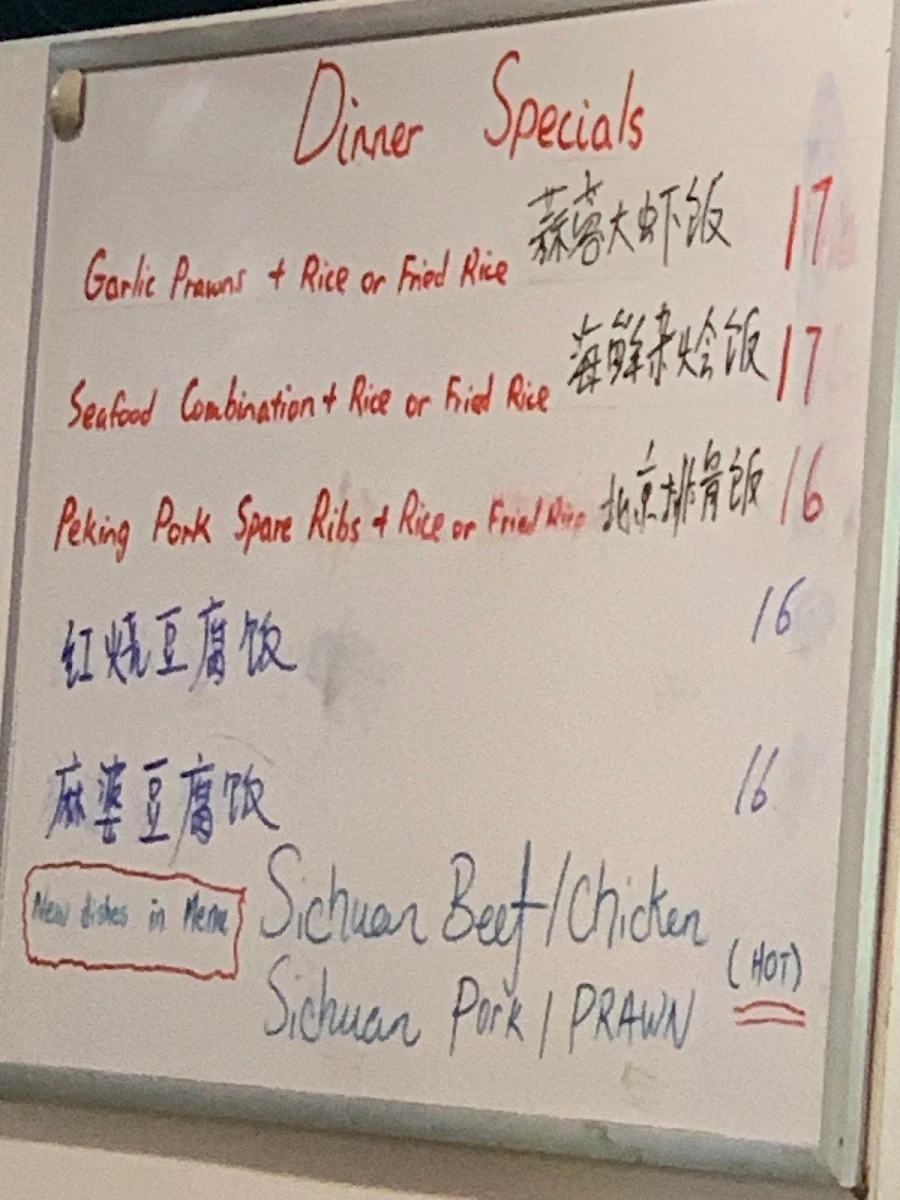 Dinner Specials
Garlic Prawns + Rice or Fried Rice 蒜蓉大虾饭 17
Seafood Combination + Rice or Fried Rice 海鲜杂烩饭 17
Peking Pork Spare Ribs + Rice or Fried Rice 北京排骨饭 16
红烧豆腐饭 16
麻婆豆腐饭 16
New dishes in Menu Sichuan Beef/Chicken
(HOT)
Sichuan Pork / PRAWN